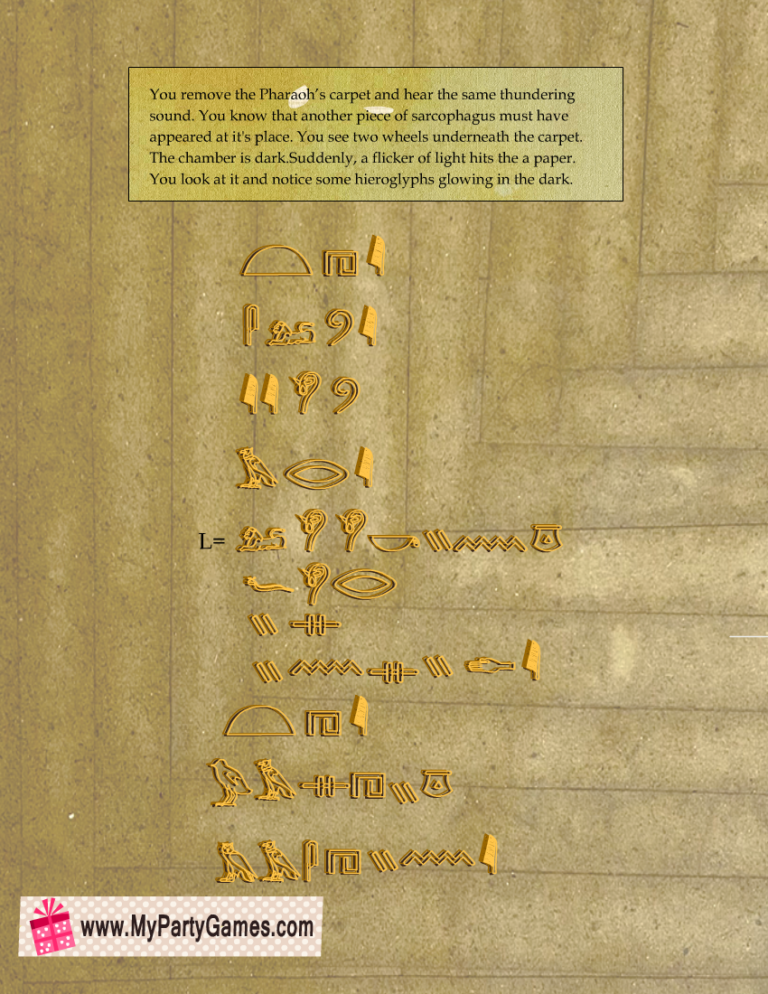 You remove the Pharaoh's carpet and hear the same thundering
sound. You know that another piece of sarcophagus must have
appeared at it's place. You see two wheels underneath the carpet.
The chamber is dark.Suddenly, a flicker of light hits the a paper.
You look at it and notice some hieroglyphs glowing in the dark.
𓏏𓉔𓇋
𓋴𓃭𓏲𓇋
𓇋𓇋𓍯𓏲
𓄿𓂋𓇋
L= 𓃭𓍯𓍯𓎡𓏭𓈖𓎼
𓆑𓍯𓂋
𓏭𓊃
𓏭𓈖𓊃𓏭𓂧𓇋
𓏏𓉔𓇋
𓅱𓄿𓊃𓉔𓏭𓎼
𓅓𓄿𓋴𓉔𓏭𓈖𓇋
www.MyPartyGames.com